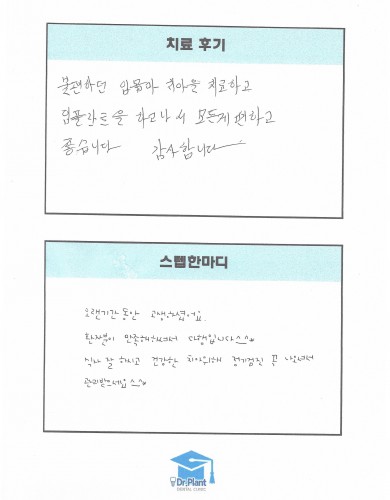 치료 후기
불편하던 잇몸과 치아을 치료하고
임플란트을 하고나서 모든게 편하고
좋습니다 감사합니다
스텝한마디
오랜기간동안 고생하셨어요.
환자분이 만족해하셔서 다행입니다^^
식사 잘 하시고 건강한 치아위해 정기검진 꼭 나오셔서
관리받으세요^^
Dr.Plant
DENTAL CLINIC